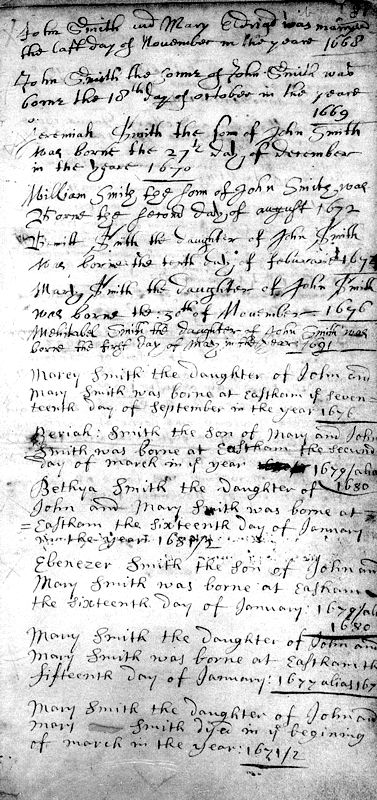 John Smith and Mary Eldrig was married
the last day of November in the yeare 1668
John Smith the sonne of John Smith was
borne the 18th day of october in the yeare
1669
Jeremiah Smith the son of John Smith
was borne the 27th day of december
in the yeare 1670
William Smith the son of John Smith was
Borne the second day of august 1672
Smith the daughter of John Smith
was borne the tenth day of february 1674
Mary Smith the daughter of John Smith
was borne the 30th of November 1676
Mehitabel Smith the daughter of John Smith was
borne the first day of May in the year 1691
Marey Smith the daughter of John and
Mary Smith was borne at Eastham ye seven=
teenth day of September in the year 1676
Beriah: Smith the Son of Mary and John
Smith was borne at Eastham the second
day of march in ye year 1679/alia
1680
Bethya Smith the daughter of
John and Mary Smith was borne at
=Eastham the sixteenth day of January
in the year: 1681/2
Ebenezer Smith the son of John and
Mary Smith was borne at Eastham
the sixteenth day of January: 1679/al
1680
Mary Smith the daughter of John and
Mary Smith was borne at Eastham the
fifteenth day of January: 1677 alias 167
Mary Smith the daughter of John and
Mary Smith dyed in ye begining
of march in the year: 1671/2